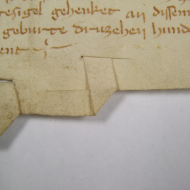 esigel gehenket an dissem
geburte druzehen hunde
ent